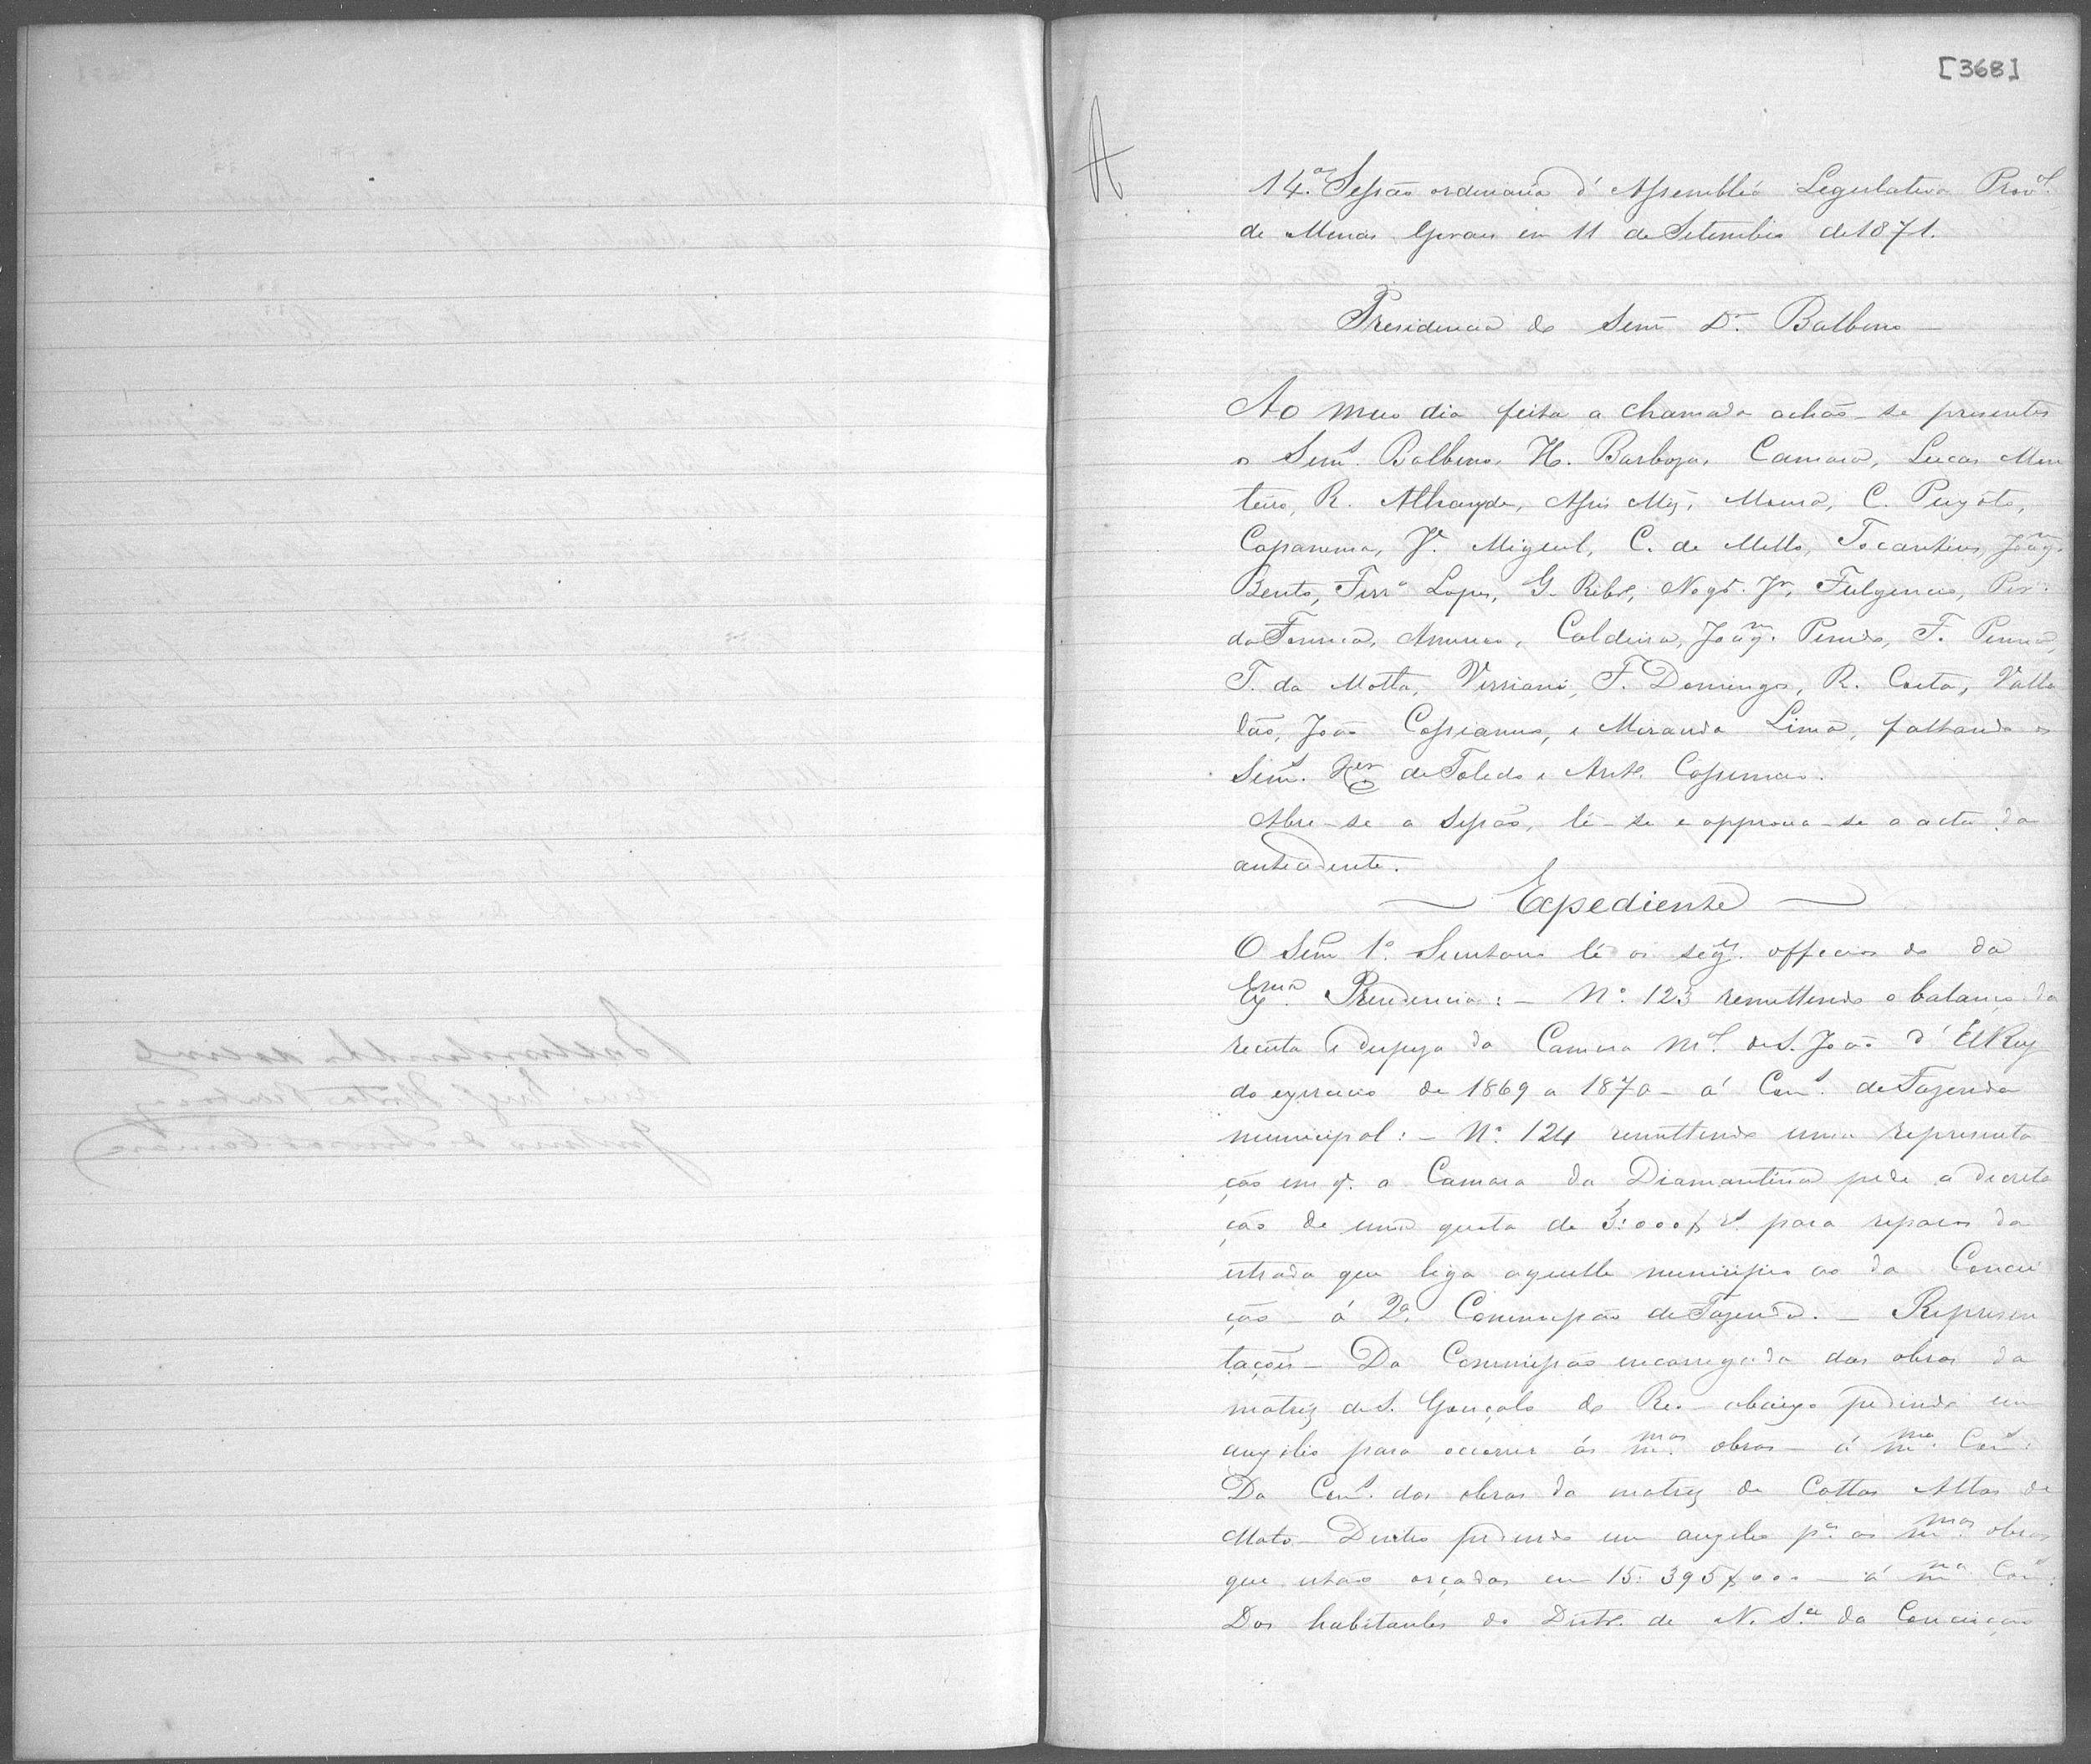 [368]
A
14.ª Sessão ordinaria d'Assembléa Legislativa Prov.al
de Minas Geraes em 11 de Setembro de 1871.
Presidencia do Senr. Dr. Balbino —
Ao meio dia feita a chamada achão-se presentes
os Senrs. Balbino, H. Barboza, Camara, Lucas Mon
teiro, R. Athayde, Assis Moura, C. Peixoto,
Capanema, Je. Miguel, C. de Mello, Tocantins, Joaqm.
Bento, Ferr.a Lopes, G. Ribr.o, Nogr.a Jr., Fulgencio,
da Fonseca, Caldeira, Joaqm. Penido, F. Penna,
T. da Motta, Versiani, F. Domingos, R. Costa, Valla
dão, João Cassianno, e Miranda Lima, faltando os
Senrs. Xer de Toledo e
Abre-se a Sessão, lê-se e approva-se a acta da
antecedente.
— Expediente —
O Senr. 1.º Secretario lê os segtes. officios do da
Exma. Presidencia: — N.º 123 remettendo o balanço da
receita e despeza da Camara Mal. de S. João d'ElRey
do exercicio de 1869 a 1870 — á Comm. de Fazenda
municipal: — N.º 124 remettendo uma representa
ção em q. a Camara da Diamantina pede a decreta
ção de uma quota de 3:000$ rs. para reparos da
estrada que liga aquelle municipio ao da Concei
ção — á 2.ª Commissão de Fazenda. — Represen
tações — Da Commissão encarregada das obras da
matriz de S. Gonçalo do Rio-abaixo pedindo um
auxilio para occorrer ás mmas. obras — á mma. Com.
Da Com. das obras da matriz de Cattas Altas de
Mato-Dentro pedindo um auxilio pa. as mmas. obras
que estão orçadas em 15:395$000 — á mma. Com.
Dos habitantes do Distr. de N. Sra. da Conceição